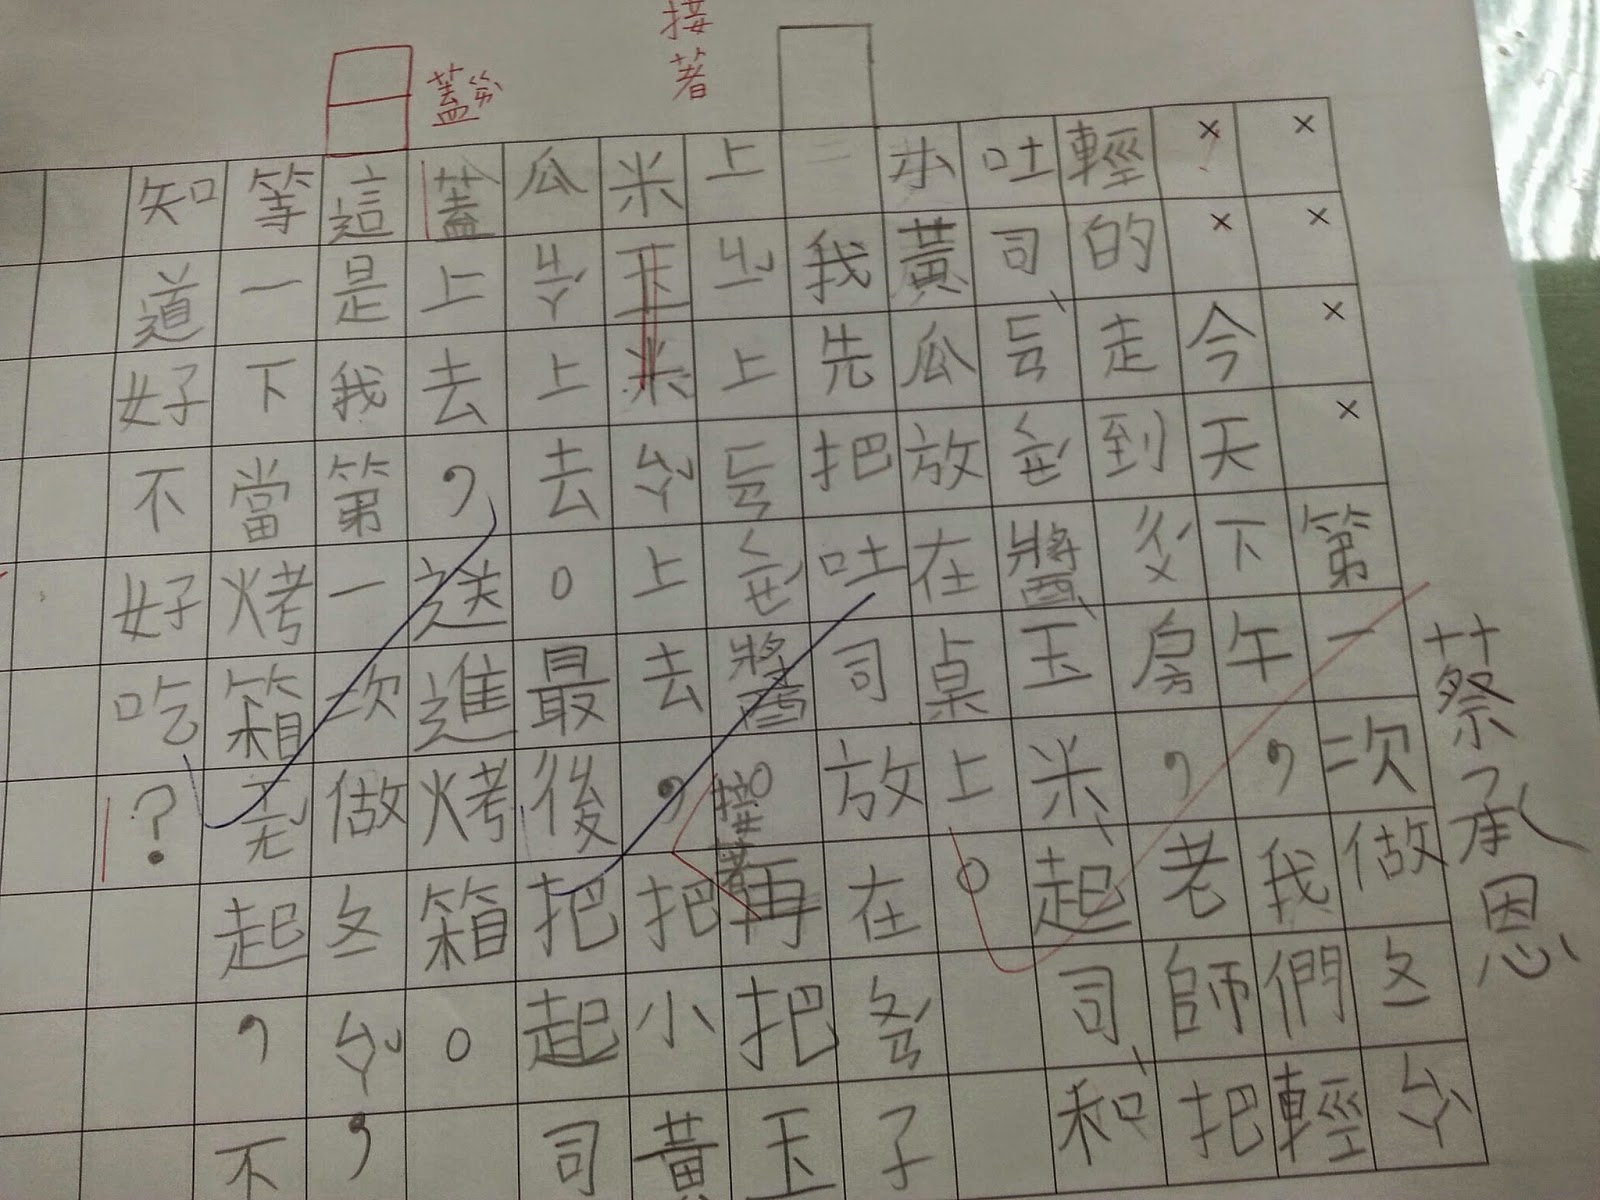 蔡承恩
××××第一次做ㄆㄧㄙㄚˋ
××今天下午，我們輕
輕的走到ㄔㄨˊ房，老師把
吐司、ㄈㄢㄑㄧㄝˊ醬、玉米、起司、和
小黃瓜放在桌上。
我先把吐司放在ㄆㄢˊ子
上ㄐㄧˇ上ㄈㄢㄑㄧㄝˊ醬。接著再把玉
接著
米玉米ㄙㄚˇ上去，把小黃
瓜ㄐㄧㄚ上去。最後把起司
蓋上去，送進烤箱。
蓋ㄍㄞˋ
這是我第一次做ㄆㄧㄙㄚˋ，
等一下當烤箱亮起，不
知道好不好吃？